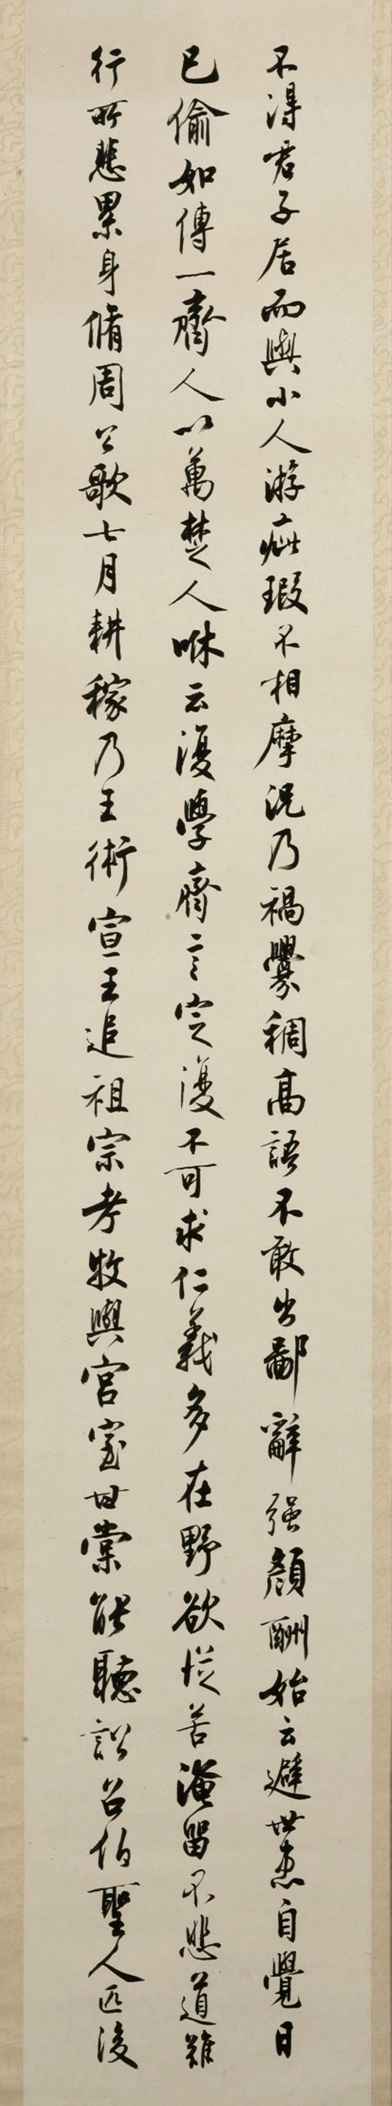 不得君子居而與小人游疵瑕不相摩況乃禍釁稠高語不敢出鄙辭強顏酬始云避世患自覺日
已偷如傅一齊人以萬楚人咻云復學齊言定復不可求仁義多在野欲從苦淹留不悲道難
行所悲累身脩周公歌七月耕稼乃王術宣王追祖宗考牧與宮室甘棠能聽訟召伯聖人匹後